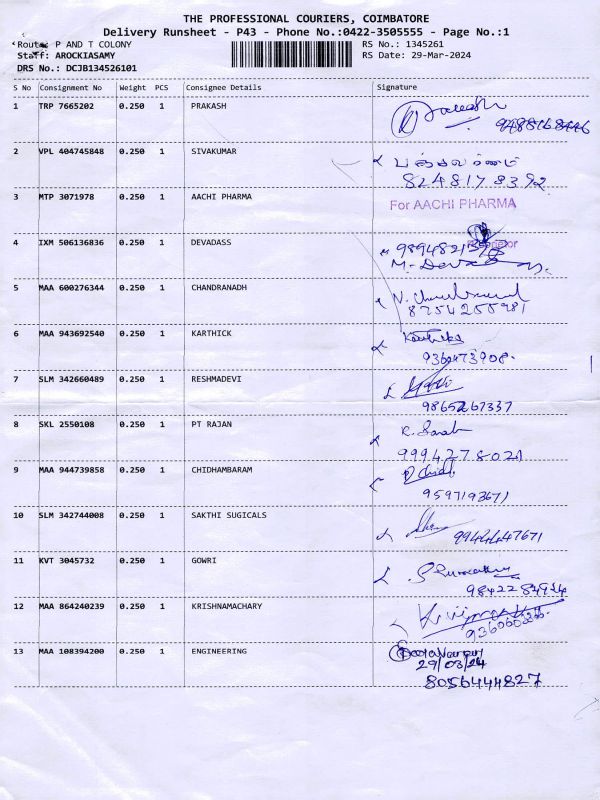 THE PROFESSIONAL COURIERS, COIMBATORE
Delivery Runsheet - P43 - Phone No.:0422-3505555 - Page No.:1
Route: P AND T COLONY RS No.: 1345261
Staff: AROCKIASAMY RS Date: 29-Mar-2024
DRS No.: DCJB134526101
S No Consignment No Weight PCS Consignee Details Signature
1 TRP 7665202 0.250 1 PRAKASH
2 VPL 404745848 0.250 1 SIVAKUMAR
8248178392
3 MTP 3071978 0.250 1 AACHI PHARMA For AACHI PHARMA
Proprietor
4 IXM 506136836 0.250 1 DEVADASS
5 MAA 600276344 0.250 1 CHANDRANADH
8754255981
6 MAA 943692540 0.250 1 KARTHICK
7 SLM 342660489 0.250 1 RESHMADEVI
9865267337
8 SKL 2550108 0.250 1 PT RAJAN
9994278021
9 MAA 944739858 0.250 1 CHIDHAMBARAM
9597193671
10 SLM 342744008 0.250 1 SAKTHI SUGICALS
9944447671
11 KVT 3045732 0.250 1 GOWRI
12 MAA 864240239 0.250 1 KRISHNAMACHARY
13 MAA 108394200 0.250 1 ENGINEERING
29/03/24
8056444827